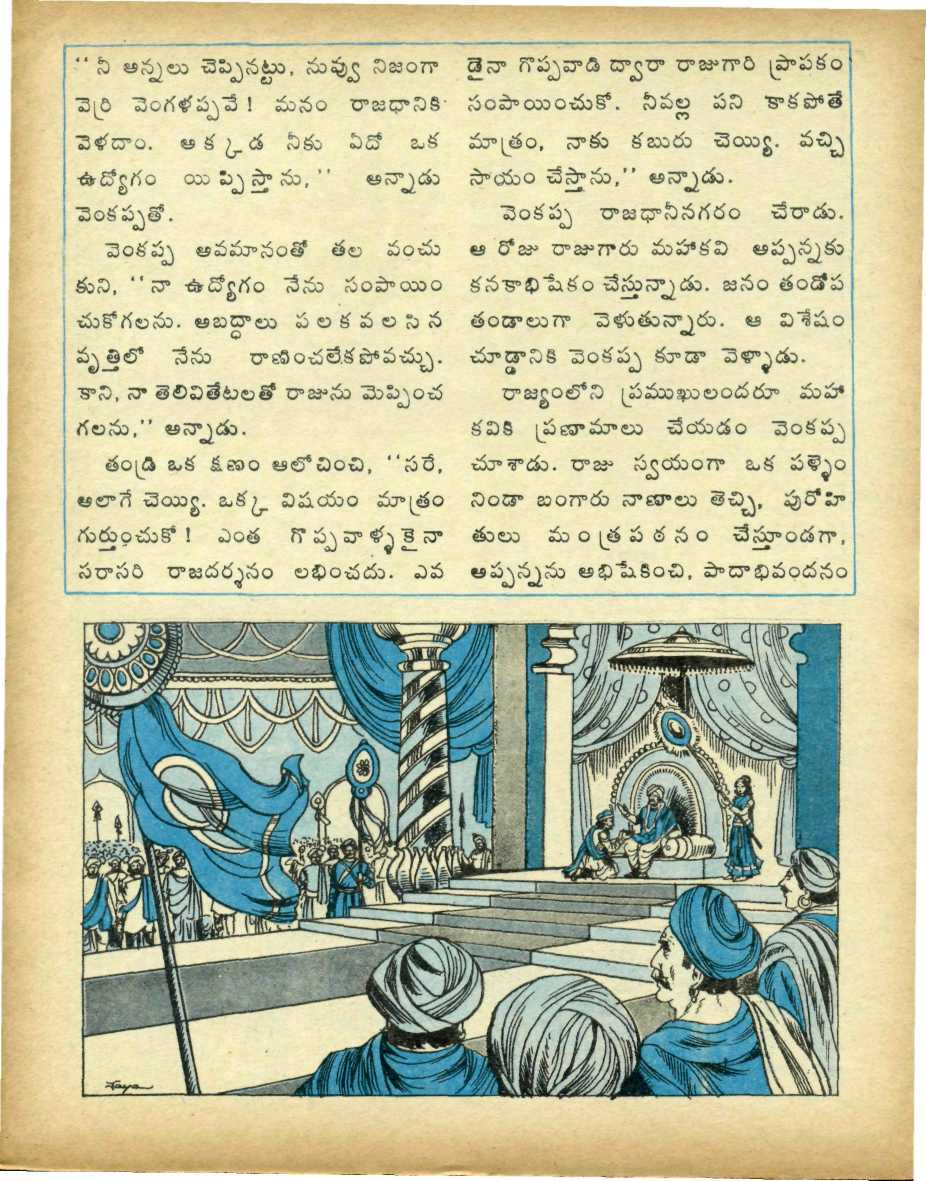 ‘‘నీ అన్నలు చెప్పినట్టు, నువ్వు నిజంగా
వెర్రి వెంగళప్పవే! మనం రాజధానికి
వెళదాం. అక్కడ నీకు ఏదో ఒక
ఉద్యోగం యిప్పిస్తాను,’’ అన్నాడు
వెంకప్పతో.
వెంకప్ప అవమానంతో తల వంచు
కుని, ‘‘నా ఉద్యోగం నేను సంపాయిం
చుకోగలను. అబద్ధాలు పలకవలసిన
వృత్తిలో నేను రాణించలేకపోవచ్చు.
కాని, నా తెలివితేటలతో రాజును మెప్పించ
గలను,’’ అన్నాడు.
తండ్రి ఒక క్షణం ఆలోచించి, ‘‘సరే,
అలాగే చెయ్యి. ఒక్క విషయం మాత్రం
గుర్తుంచుకో! ఎంత గొప్పవాళ్ళకైనా
సరాసరి రాజదర్శనం లభించదు. ఎవ
డైనా గొప్పవాడి ద్వారా రాజుగారి ప్రాపకం
సంపాయించుకో. నీవల్ల పని కాకపోతే
మాత్రం, నాకు కబురు చెయ్యి. వచ్చి
సాయం చేస్తాను,’’ అన్నాడు.
వెంకప్ప రాజధానీనగరం చేరాడు.
ఆ రోజు రాజుగారు మహాకవి అప్పన్నకు
కనకాభిషేకం చేస్తున్నాడు. జనం తండోప
తండాలుగా వెళుతున్నారు. ఆ విశేషం
చూడ్డానికి వెంకప్ప కూడా వెళ్ళాడు.
రాజ్యంలోని ప్రముఖులందరూ మహా
కవికి ప్రణామాలు చేయడం వెంకప్ప
చూశాడు. రాజు స్వయంగా ఒక పళ్ళెం
నిండా బంగారు నాణాలు తెచ్చి, పురోహి
తులు మంత్రపఠనం చేస్తూండగా,
అప్పన్నను అభిషేకించి, పాదాభివందనం